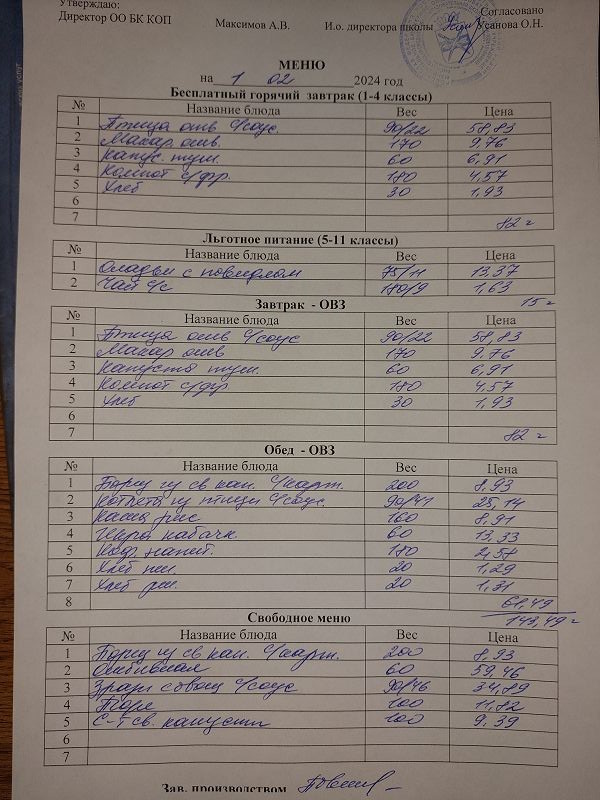 Утверждаю:
Директор ОО БК КОП Максимов А.В. И.о. директора школы Усанова О.Н.
Согласовано
МЕНЮ
на 1 02 2024 год
Бесплатный горячий завтрак (1-4 классы)
№ Название блюда Вес Цена
1 Птица отв с/соус 90/22 58,83
2 Макар отв. 170 9,76
3 Капус. туш. 60 6,91
4 Компот с/фр. 180 4,57
5 Хлеб 30 1,93
6
7 82 г
Льготное питание (5-11 классы)
№ Название блюда Вес Цена
1 Оладьи с повидлом 75/11 13,37
2 Чай с/с 180/9 1,63
15 г
Завтрак - ОВЗ
№ Название блюда Вес Цена
1 Птица отв с/соус 90/22 58,83
2 Макар отв 170 9,76
3 Капуста туш. 60 6,91
4 Компот с/фр 180 4,57
5 Хлеб 30 1,93
6
7 82 г
Обед - ОВЗ
№ Название блюда Вес Цена
1 Борщ из св кап. с/карт. 200 8,93
2 Котлета из птицы с/соус. 90/41 25,14
3 Каша рис 160 8,91
4 Икра кабачк. 60 13,33
5 напит. 180 2,58
6 Хлеб пш. 20 1,29
7 Хлеб рж. 20 1,31
8 61,49
143,49 г
Свободное меню
№ Название блюда Вес Цена
1 Борщ из св кап. с/карт. 200 8,93
2 Отбивная 60 59,46
3 Зразы с овощ с/соус 90/46 34,89
4 Пюре 100 11,82
5 С-т св. капусты 100 9,39
6
7
Зав. производством